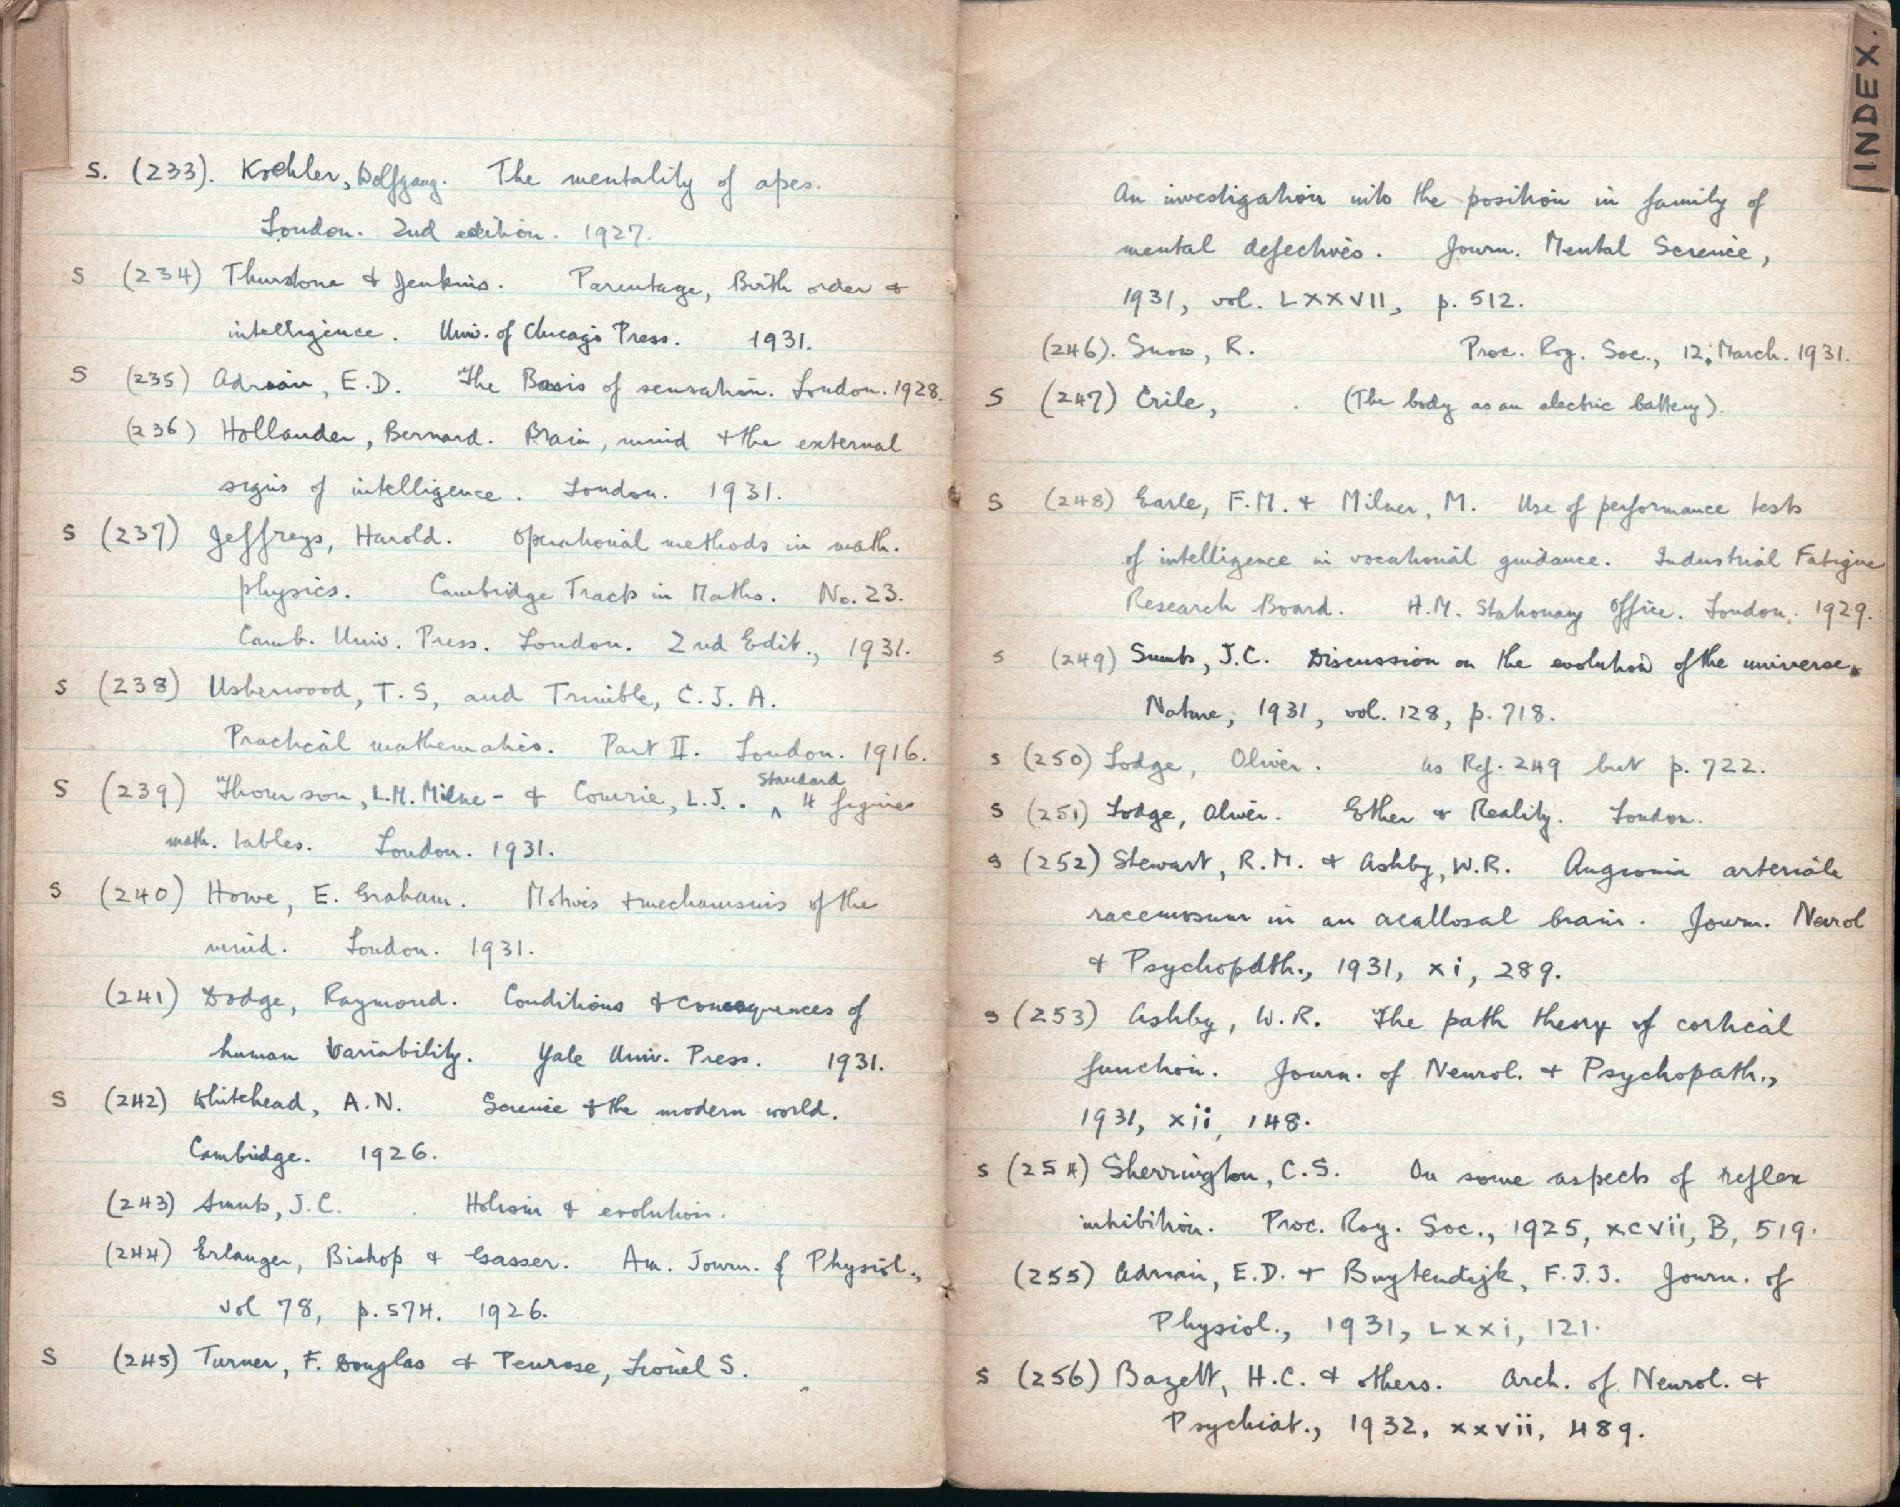 S. (233). Koehler, Wolfgang. The mentality of apes.
London. 2nd edition. 1927.
S (234) Thurstone & Jenkins. Parentage, Birth order &
intelligence. Univ. of Chicago Press. 1931.
S (235) Adrian, E.D. The Basis of sensation. London. 1928.
(236) Hollander, Bernard. Brain, mind & the external
signs of intelligence. London. 1931.
S (237) Jeffreys, Harold. Operational methods in math.
physics. Cambridge Tracts in Maths. No. 23.
Camb. Univ. Press. London. 2nd Edit., 1931.
S (238) Usherwood, T. S, and Trimble, C. J. A.
Practical mathematics. Part II. London. 1916.
S (239) Thomson, L.M. Milne- & Comrie, L.J. . Standard 4 figure
math. tables. London. 1931.
S (240) Howe, E. Graham. Motives & mechanisms of the
mind. London. 1931.
(241) Dodge, Raymond. Conditions & consequences of
human variability. Yale Univ. Press. 1931.
S (242) Whitehead, A.N. Science & the modern world.
Cambridge. 1926.
(243) Smuts, J.C. Holism & evolution.
(244) Erlanger, Bishop & Gasser. Am. Journ. of Physiol.,
vol 78, p. 574. 1926.
S (245) Turner, F. Douglas & Penrose, Lionel S.
INDEX.
An investigation into the position in family of
mental defectives. Journ. Mental Science,
1931, vol. LXXVII, p. 512.
(246). Snow, R. Proc. Roy. Soc., 12, March. 1931.
S (247) Crile, . (The body as an electric battery).
S (248) Earle, F.M. & Milner, M. Use of performance tests
of intelligence in vocational guidance. Industrial Fatigue
Research Board. H.M. Stationary Office. London. 1929.
S (249) Smuts, J.C. Discussion on the evolution of the universe.
Nature, 1931, vol. 128, p. 718.
S (250) Lodge, Oliver. as Ref. 249 but p. 722.
S (251) Lodge, Oliver. Ether & Reality. London.
S (252) Stewart, R.M. & Ashby, W.R. Angioma arteriale
racemosum in an acallosal brain. Journ. Neurol
& Psychopath., 1931, xi, 289.
S (253) Ashby, W.R. The path theory of cortical
function. Journ. of Neurol. & Psychopath.,
1931, xii, 148.
S (254) Sherrington, C.S. On some aspects of reflex
inhibition. Proc. Roy. Soc., 1925, xcvii, B, 519.
(255) Adrian, E.D. & Buytendijk, F.J.J. Journ. of
Physiol., 1931, Lxxi, 121.
S (256) Bazett, H.C. & others. Arch. of Neurol. &
Psychiat., 1932, xxvii, 489.